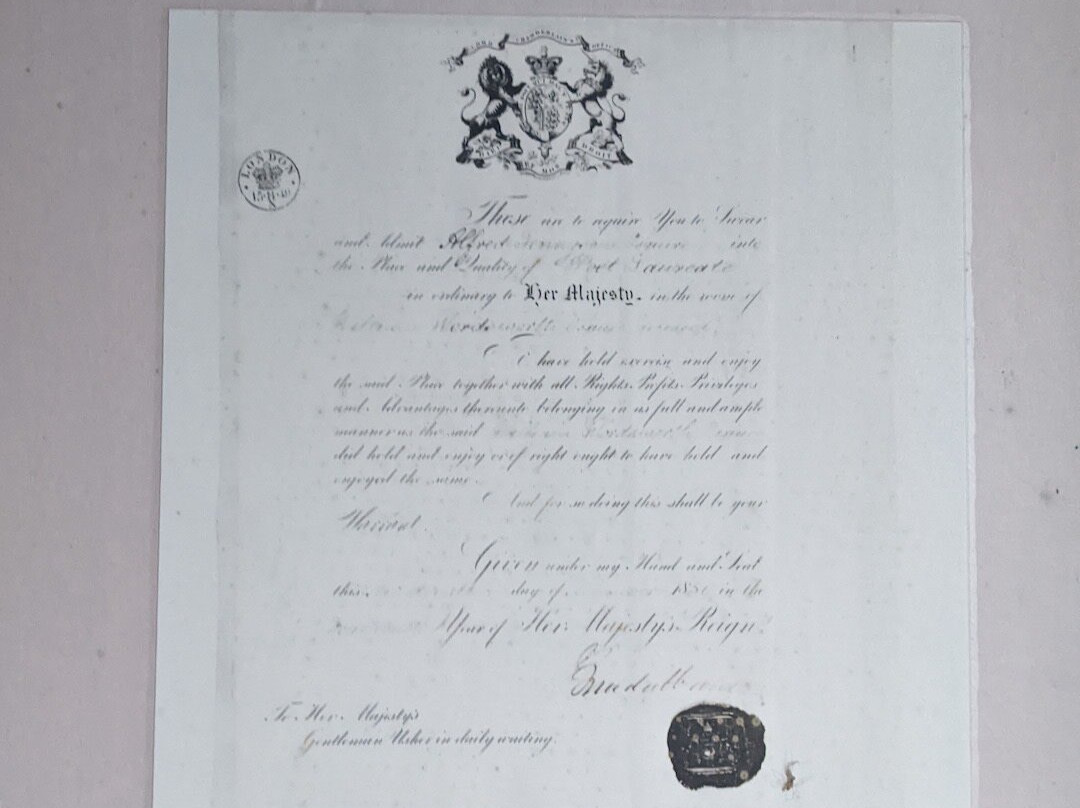 LORD CHAMBERLAIN'S OFFICE
DIEU ET MON DROIT
LONDON
These are to require You to Swear
and Admit Alfred Tennyson Esquire into
the Place and Quality of Poet Laureate
in ordinary to Her Majesty. in the room of
Wordsworth Esquire deceased.
To have hold exercise and enjoy
the said Place together with all Rights Profits Privileges
and Advantages thereunto belonging in as full and ample
manner as the said William Wordsworth
did hold and enjoy or of right ought to have held and
enjoyed the same.
And for so doing this shall be your
Warrant.
Given under my Hand and Seal
this day of 1850 in the
Year of Her Majesty's Reign.
To Her Majesty's
Gentleman Usher in daily waiting.